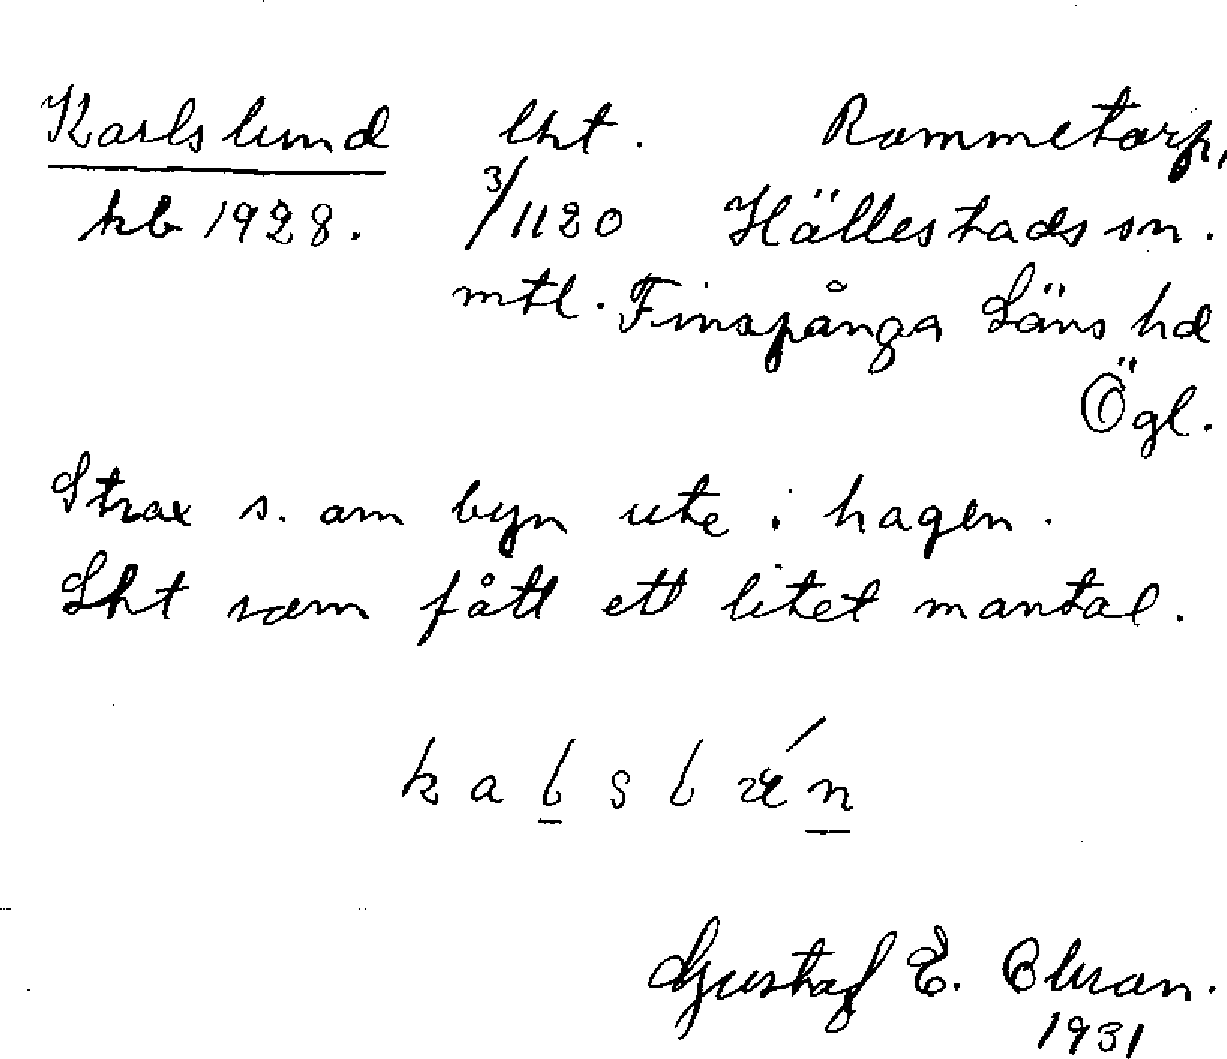 Karlslund lht. Rommetorp,
kb 1928. 3/1120 Hällestads sn.
mtl. Finspånga Läns hd
Ögl.
Strax s. om byn ute i hagen.
Lht som fått ett litet mantal.
Gustaf E.
1931